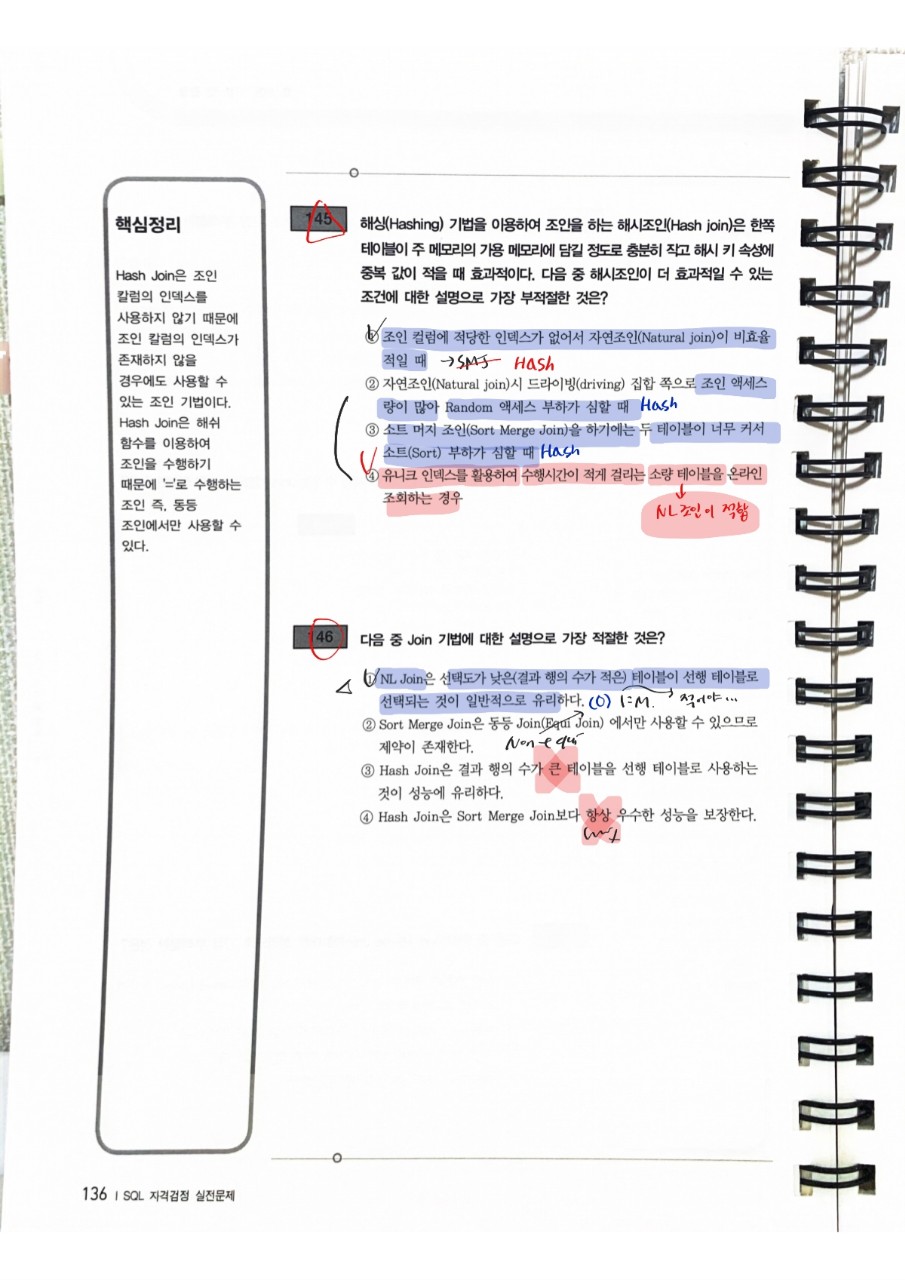 핵심정리
Hash Join은 조인
칼럼의 인덱스를
사용하지 않기 때문에
조인 칼럼의 인덱스가
존재하지 않을
경우에도 사용할 수
있는 조인 기법이다.
Hash Join은 해쉬
함수를 이용하여
조인을 수행하기
때문에 '='로 수행하는
조인 즉, 동등
조인에서만 사용할 수
있다.
145
해싱(Hashing) 기법을 이용하여 조인을 하는 해시조인(Hash join)은 한쪽
테이블이 주 메모리의 가용 메모리에 담길 정도로 충분히 작고 해시 키 속성에
중복 값이 적을 때 효과적이다. 다음 중 해시조인이 더 효과적일 수 있는
조건에 대한 설명으로 가장 부적절한 것은?
① 조인 컬럼에 적당한 인덱스가 없어서 자연조인(Natural join)이 비효율
적일 때 → SMJ HASH
② 자연조인(Natural join)시 드라이빙(driving) 집합 쪽으로 조인 액세스
량이 많아 Random 액세스 부하가 심할 때 Hash
③ 소트 머지 조인(Sort Merge Join)을 하기에는 두 테이블이 너무 커서
소트(Sort) 부하가 심할 때 Hash
④ 유니크 인덱스를 활용하여 수행시간이 적게 걸리는 소량 테이블을 온라인
조회하는 경우
NL조인이 적합
146
다음 중 Join 기법에 대한 설명으로 가장 적절한 것은?
① NL Join은 선택도가 낮은(결과 행의 수가 적은) 테이블이 선행 테이블로
선택되는 것이 일반적으로 유리하다. (O) 1=M. 적어야...
② Sort Merge Join은 동등 Join(Equi Join) 에서만 사용할 수 있으므로
제약이 존재한다. Non-equi
③ Hash Join은 결과 행의 수가 큰 테이블을 선행 테이블로 사용하는
것이 성능에 유리하다.
④ Hash Join은 Sort Merge Join보다 항상 우수한 성능을 보장한다.
136 | SQL 자격검정 실전문제